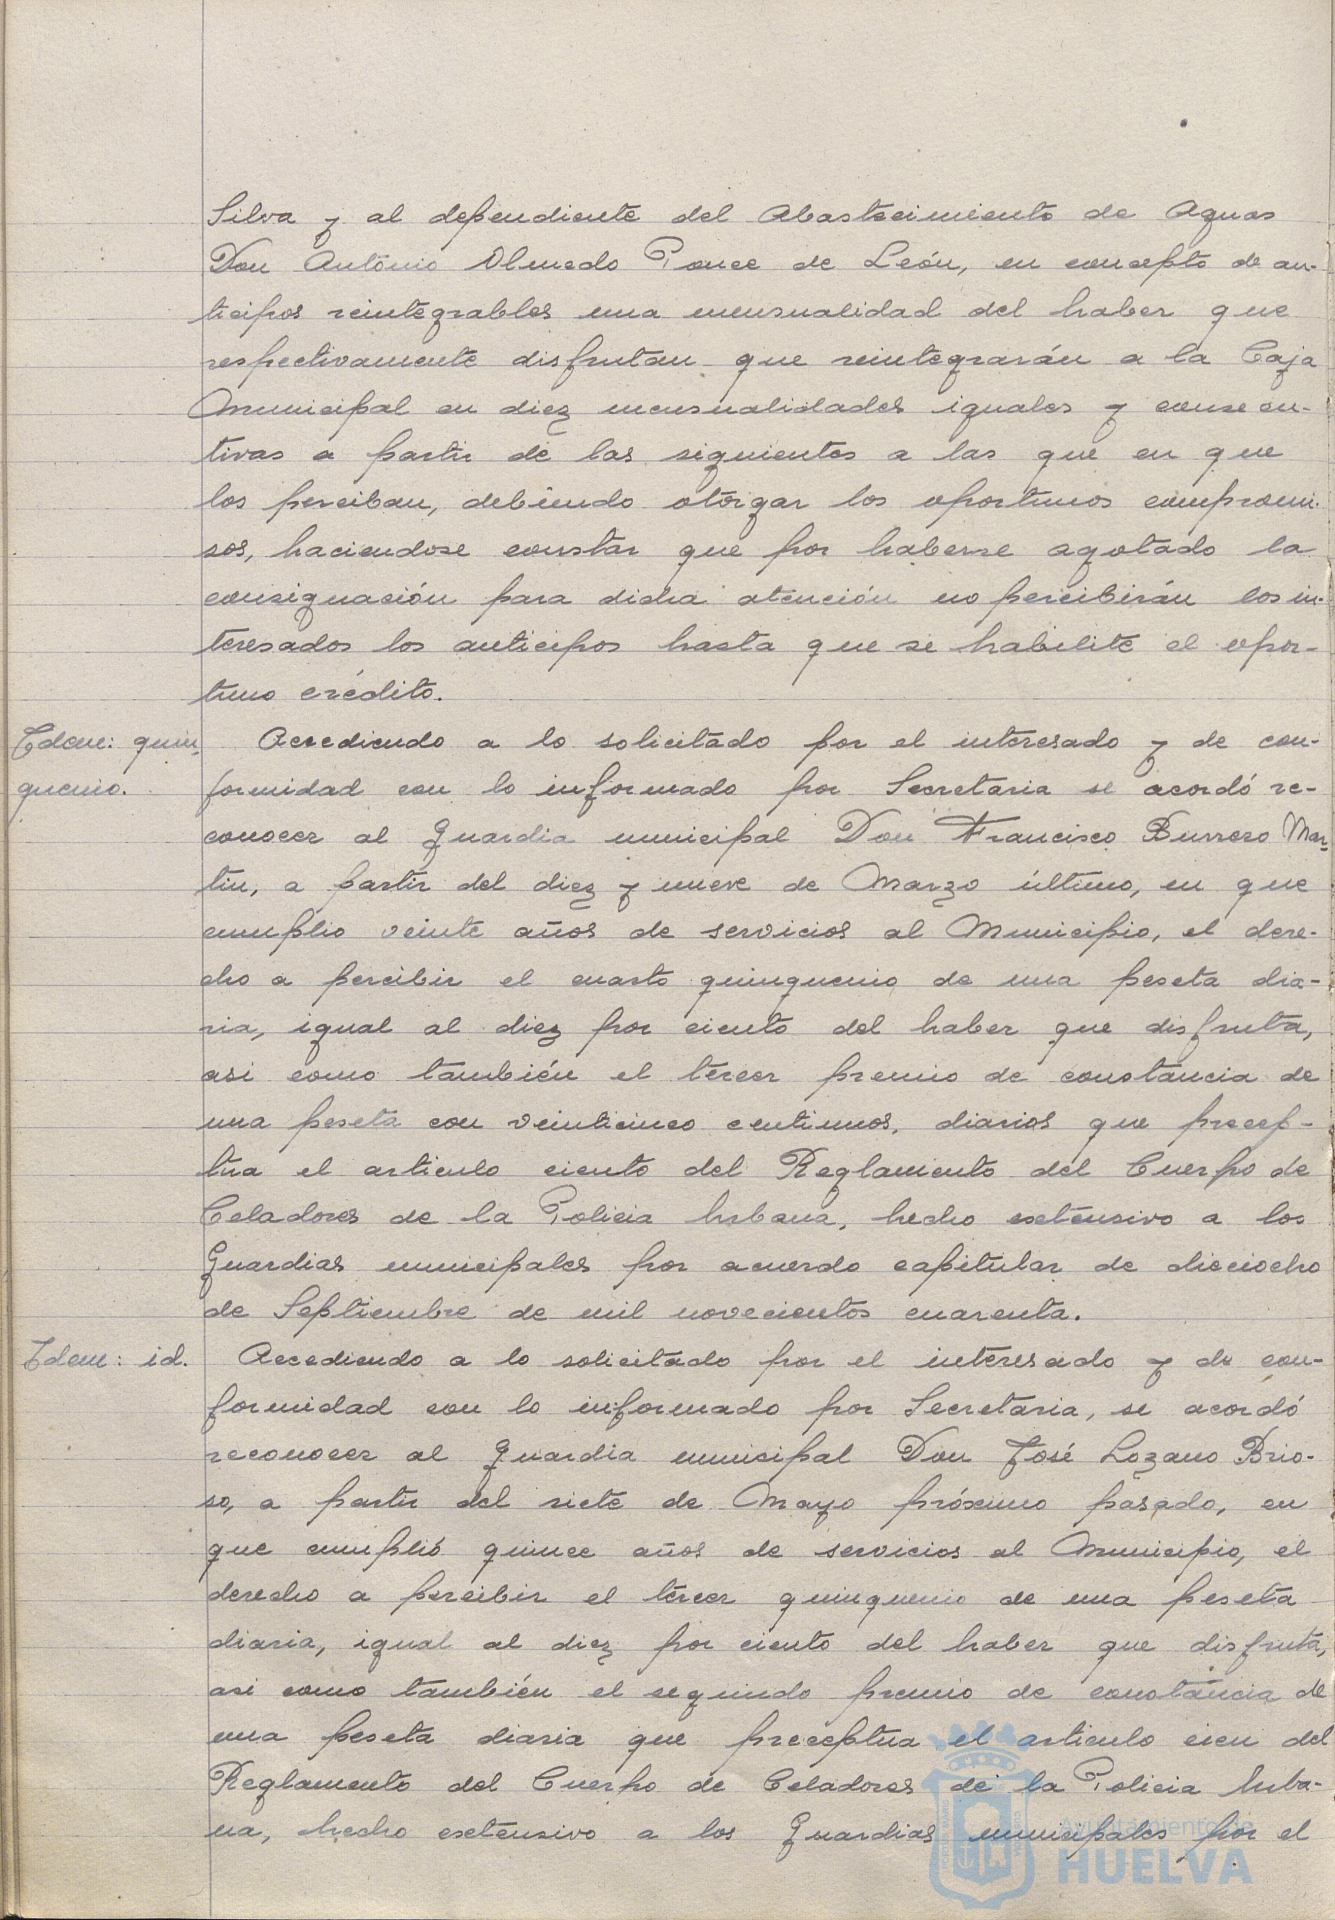 Silva y al dependiente del Abastecimiento de Aguas
Don Antonio Olmedo Ponce de León, en concepto de an-
ticipos reintegrables una mensualidad del haber que
respectivamente disfrutan que reintegrarán a la Caja
Municipal en diez mensualidades iguales y consecu-
tivas a partir de las siguientes a las que en que
los perciban, debiendo otorgar los oportunos compromi-
sos, haciendose constar que por haberse agotado la
consignación para dicha atención no percibirán los in-
teresados los anticipos hasta que se habilite el opor-
tuno crédito.
Idem: quin-
quenio.
Accediendo a lo solicitado por el interesado y de con-
formidad con lo informado por Secretaria se acordó re-
conocer al Guardia municipal Don Francisco Burrero Mar-
tin, a partir del diez y nueve de Marzo último, en que
cumplio veinte años de servicios al Municipio, el dere-
cho a percibir el cuarto quinquenio de una peseta dia-
ria, igual al diez por ciento del haber que disfruta,
asi como también el tercer premio de constancia de
una peseta con veinticinco centimos, diarios que precep-
tua el articulo ciento del Reglamento del Cuerpo de
Celadores de la Policia Urbana, hecho extensivo a los
Guardias municipales por acuerdo capitular de dieciocho
de Septiembre de mil novecientos cuarenta.
Idem: id.
Accediendo a lo solicitado por el interesado y de con-
formidad con lo informado por Secretaria, se acordó
reconocer al Guardia municipal Don José Lozano Brio-
so, a partir del siete de Mayo próximo pasado, en
que cumplió quince años de servicios al Municipio, el
derecho a percibir el tercer quinquenio de una peseta
diaria, igual al diez por ciento del haber que disfruta,
asi como también el segundo premio de constancia de
una peseta diaria que preceptua el articulo cien del
Reglamento del Cuerpo de Celadores de la Policia Urba-
na, hecho extensivo a los Guardias municipales por el
Ayuntamiento de
HUELVA